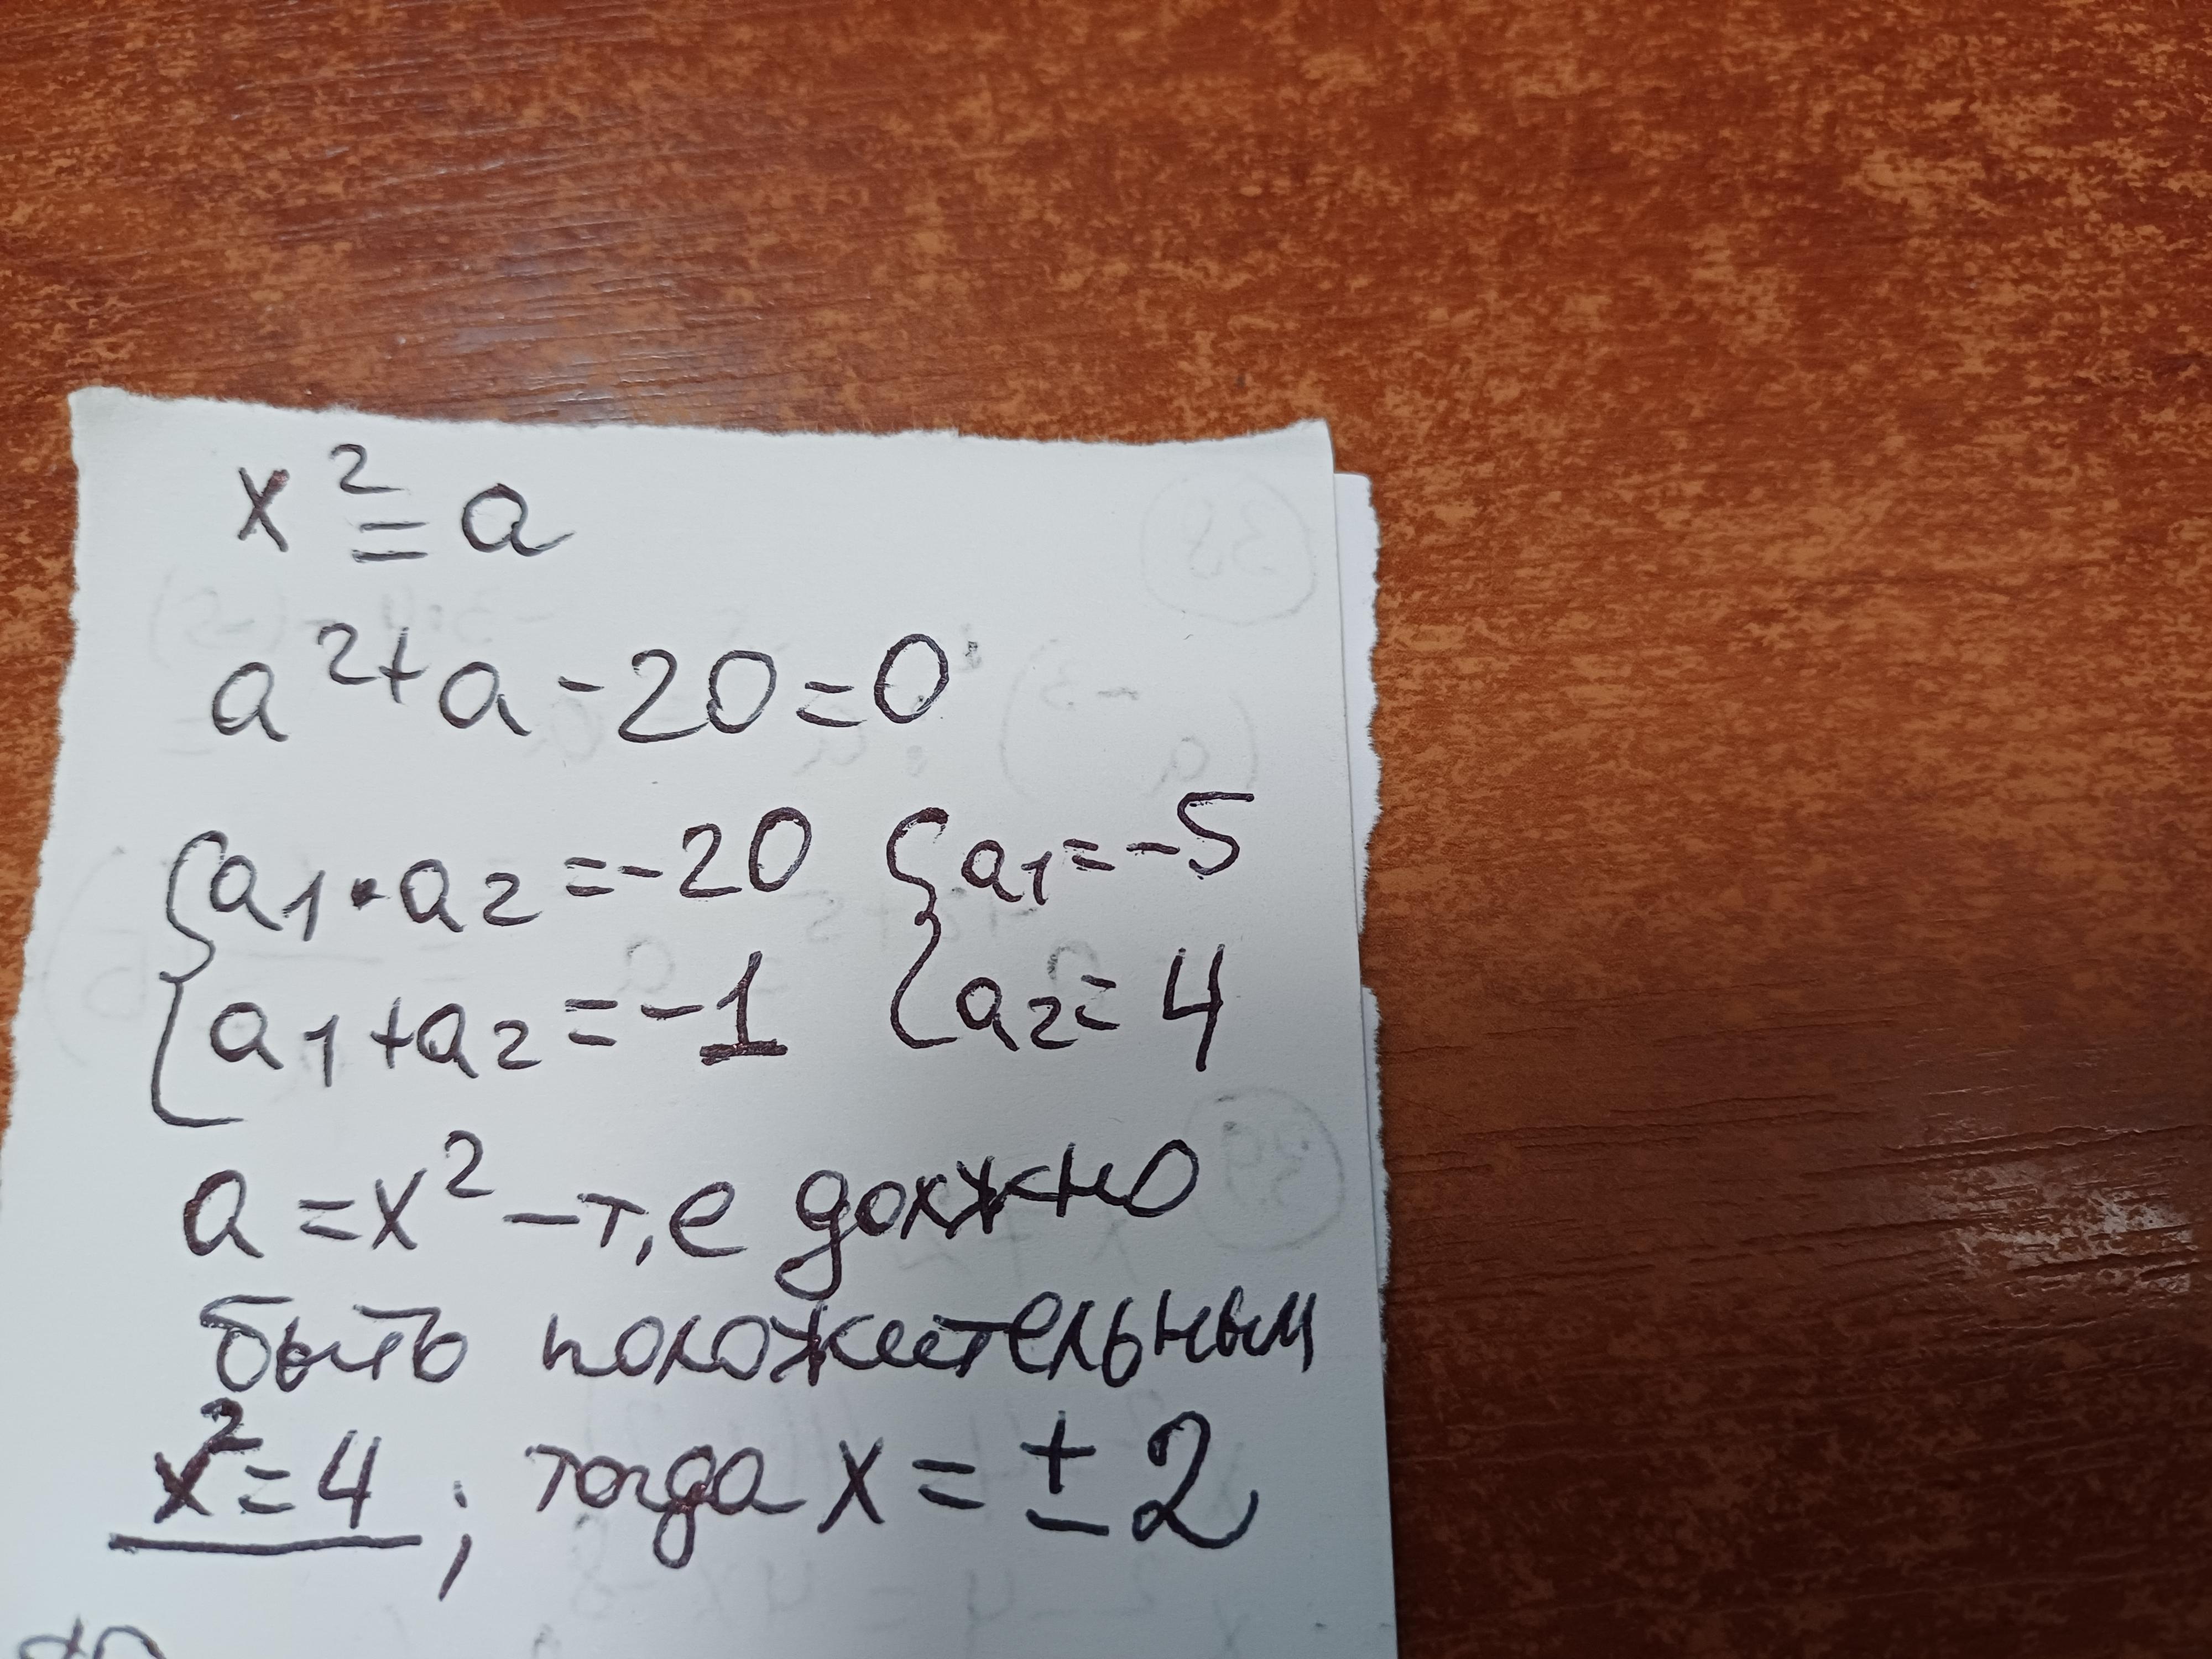 x² = a
a² + a - 20 = 0
{a₁ • a₂ = -20 {a₁ = -5
{a₁ + a₂ = -1 {a₂ = 4
a = x² – т,е должно
быть положительным
x² = 4 ; тогда x = ± 2